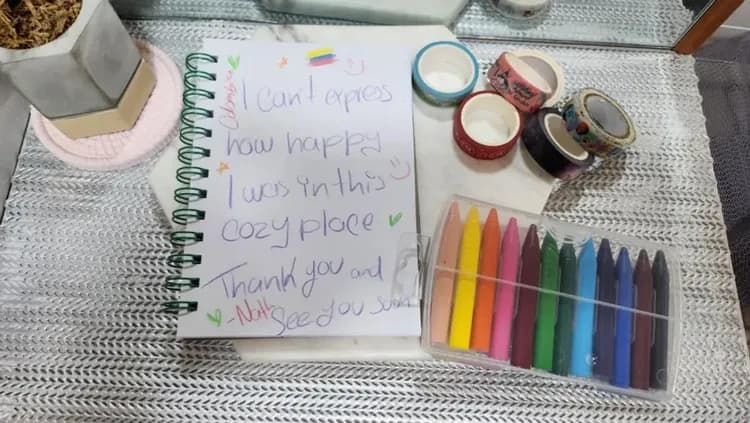 I can't express
how happy
I was in this
cozy place
Thank you and
See you soon